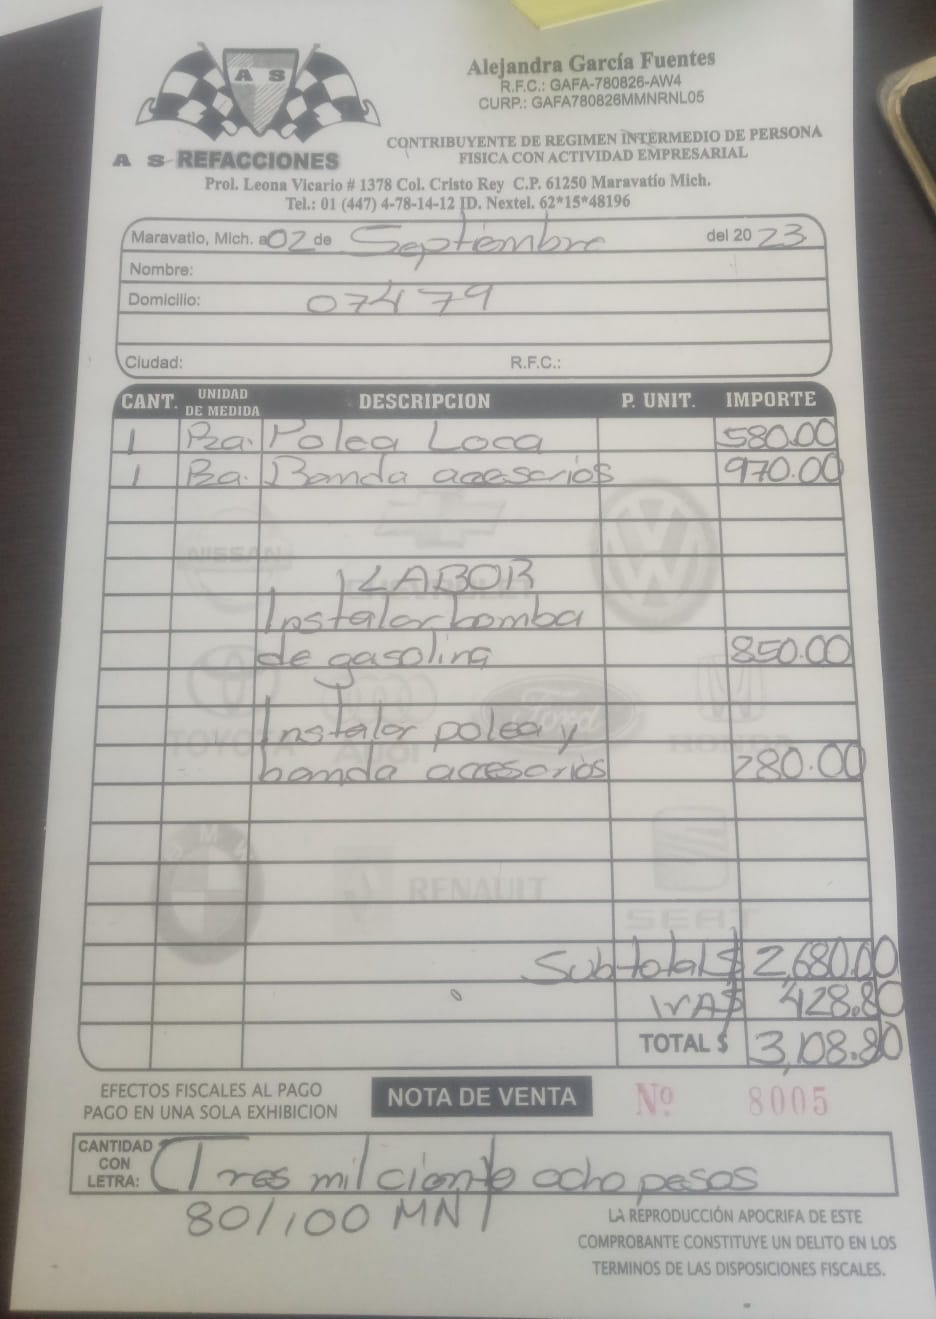 A S
Alejandra García Fuentes
R.F.C.: GAFA-780826-AW4
CURP.: GAFA780826MMNRNL05
A S REFACCIONES
CONTRIBUYENTE DE REGIMEN INTERMEDIO DE PERSONA
FISICA CON ACTIVIDAD EMPRESARIAL
Prol. Leona Vicario # 1378 Col. Cristo Rey C.P. 61250 Maravatío Mich.
Tel.: 01 (447) 4-78-14-12 ID. Nextel. 62*15*48196
Maravatio, Mich. a 02 de Septiembre del 20 23
Nombre:
Domicilio: 07479
Ciudad: R.F.C.:
CANT. UNIDAD DE MEDIDA DESCRIPCION P. UNIT. IMPORTE
1 Pza. Polea Loca 580.00
1 Pza. Banda accesorios 970.00
NISSAN CHEVROLET
LABOR
Instalar bomba
de gasolina 850.00
TOYOTA AUDI Ford HONDA
Instalar polea y
banda accesorios 280.00
BMW RENAULT SEAT
Subtotal $ 2,680.00
IVA $ 428.80
TOTAL $ 3,108.80
EFECTOS FISCALES AL PAGO
PAGO EN UNA SOLA EXHIBICION
NOTA DE VENTA
Nº 8005
CANTIDAD CON LETRA: (Tres mil ciento ocho pesos
80/100 MN)
LA REPRODUCCIÓN APOCRIFA DE ESTE
COMPROBANTE CONSTITUYE UN DELITO EN LOS
TERMINOS DE LAS DISPOSICIONES FISCALES.